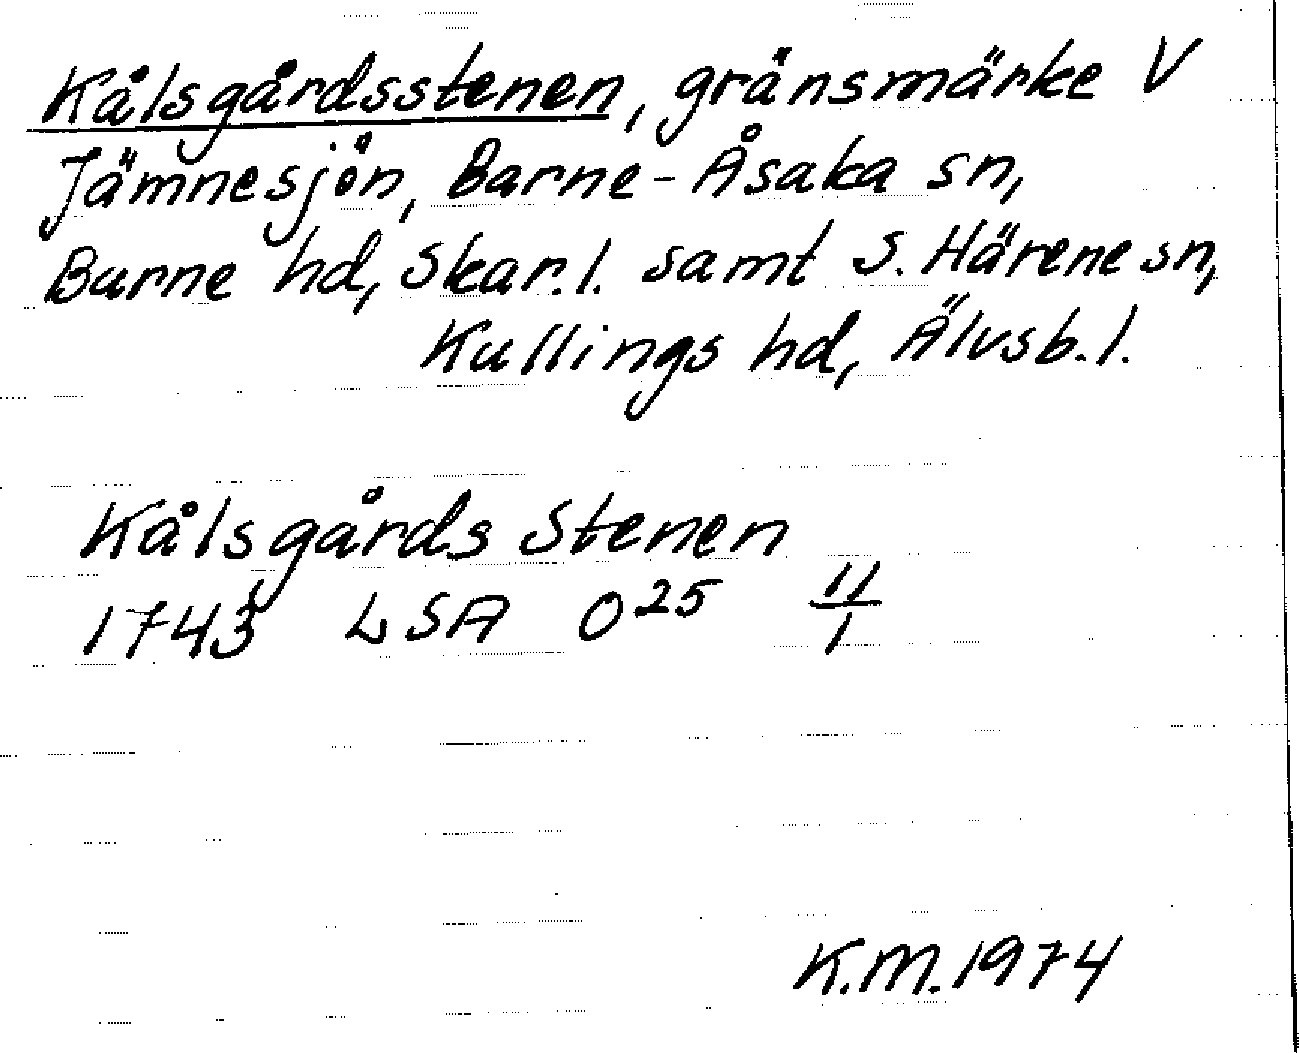 Kålsgårdsstenen, gränsmärke V
Jämnesjön, Barne-Åsaka sn,
Barne hd, Skar.l. samt S. Härene sn,
Kullings hd, Älvsb.l.
Kålsgårds Stenen
1743 LSA O25 11/1
K.M.1974